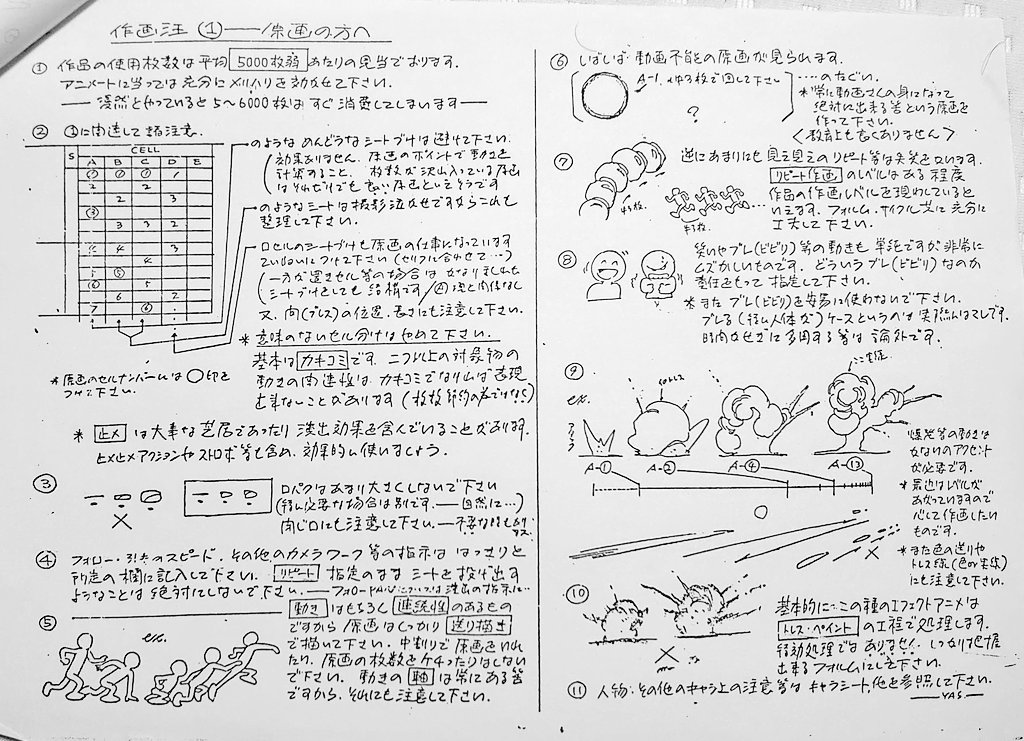 作画注 ①――原画の方へ
① 作品の使用枚数は平均 5000枚弱 あたりの見当でおります。
アニメートに当っては充分にメリハリを効かせて下さい。
――漫然とやっていると5〜6000枚はすぐ消費してしまいます――
② ①に関連して諸注意.
CELL
S A B C D E
のような めんどうなシートづけは避けて下さい.
(効果ありません. 原画のポイントで動きを
計算すること. 枚数が沢山入っている原画
はそれだけでも良い原画といえそうです
のようなシートは撮影流なせですからこれも
整理して下さい.
口セルのシートづけも原画の仕事になっています
ていねいにつけて下さい(セリフに合わせて…)
シートづけをしても結構です
又、間(ブレス)の位置、長さにも注意して下さい.
* 意味のないセル分けはやめて下さい.
基本は カキコミ です. 二つ以上の対象物の
動きの関連性は カキコミでなければ表現
出来ないことがあります(枚数節約の為ではなく)
*原画のセルナンバーには○印を
つけて下さい.
* 止メ は大事な芝居であったり 演出効果を含んでいることがあります.
止メ止メアクションやストロボ等も含め、効果的に使いましょう.
③ 口パクはあまり大きくしないで下さい
(特に必要な場合は別です.――自然に…)
閉じ口にも注意して下さい.
④ フォロー・引きのスピード、その他のカメラワーク等の指示は はっきりと
所定の欄に記入して下さい. リピート 指定のまま シートを投げ出す
ようなことは絶対にしないで下さい.
⑤ 動き はもちろく 連続性 のあるもの
ですから 原画はしっかり 送り描き
で描いて下さい. 中割りで原画をいれ
たり、原画の枚数をケチったりはしない
で下さい. 動きの 軸 は常にある筈
ですから、それにも注意して下さい.
ex.
⑥ しばしば 動画不能の原画が見られます.
A-1. 中3枚で回して下さい
……のたぐい.
?
*常に動画さんの身になって
絶対に出来る筈という原画を
作って下さい.
<教育上も良くありません>
⑦ 逆にあまりにも見え見えのリピート等は失笑をかいます.
リピート作画 のレベルはある程度
作品の作画レベルを現わしていると
いえます. フォルム、サイクル共に充分に
工夫して下さい.
中1枚.
中1枚.
⑧ 笑いやブレ(ビビリ)等の動きも 単純ですが非常に
ムズかしいものです. どういうブレ(ビビリ)なのか
責任をもって 指定して下さい.
*また ブレ(ビビリ)を安易に使わないで下さい.
ブレる(特に人体が)ケースというのは実際にはマレです.
時間かせぎに多用する等は論外です.
⑨ ex.
A-① A-② A-④ A-⑬
爆発等の動きは
かないのアクセント
が必要です.
*最近はレベルが
あがっていますので
心して作画したい
ものです.
*また色の送りや
トレス線(色or実線)
にも注意して下さい.
⑩ 基本的に この種のエフェクトアニメは
トレス・ペイント の工程で処理します.
特効処理ではありません. しっかり把握
出来るフォルムにして下さい.
⑪ 人物・その他のキャラ上の注意等は キャラシート、他を参照して下さい.
――YAS.――